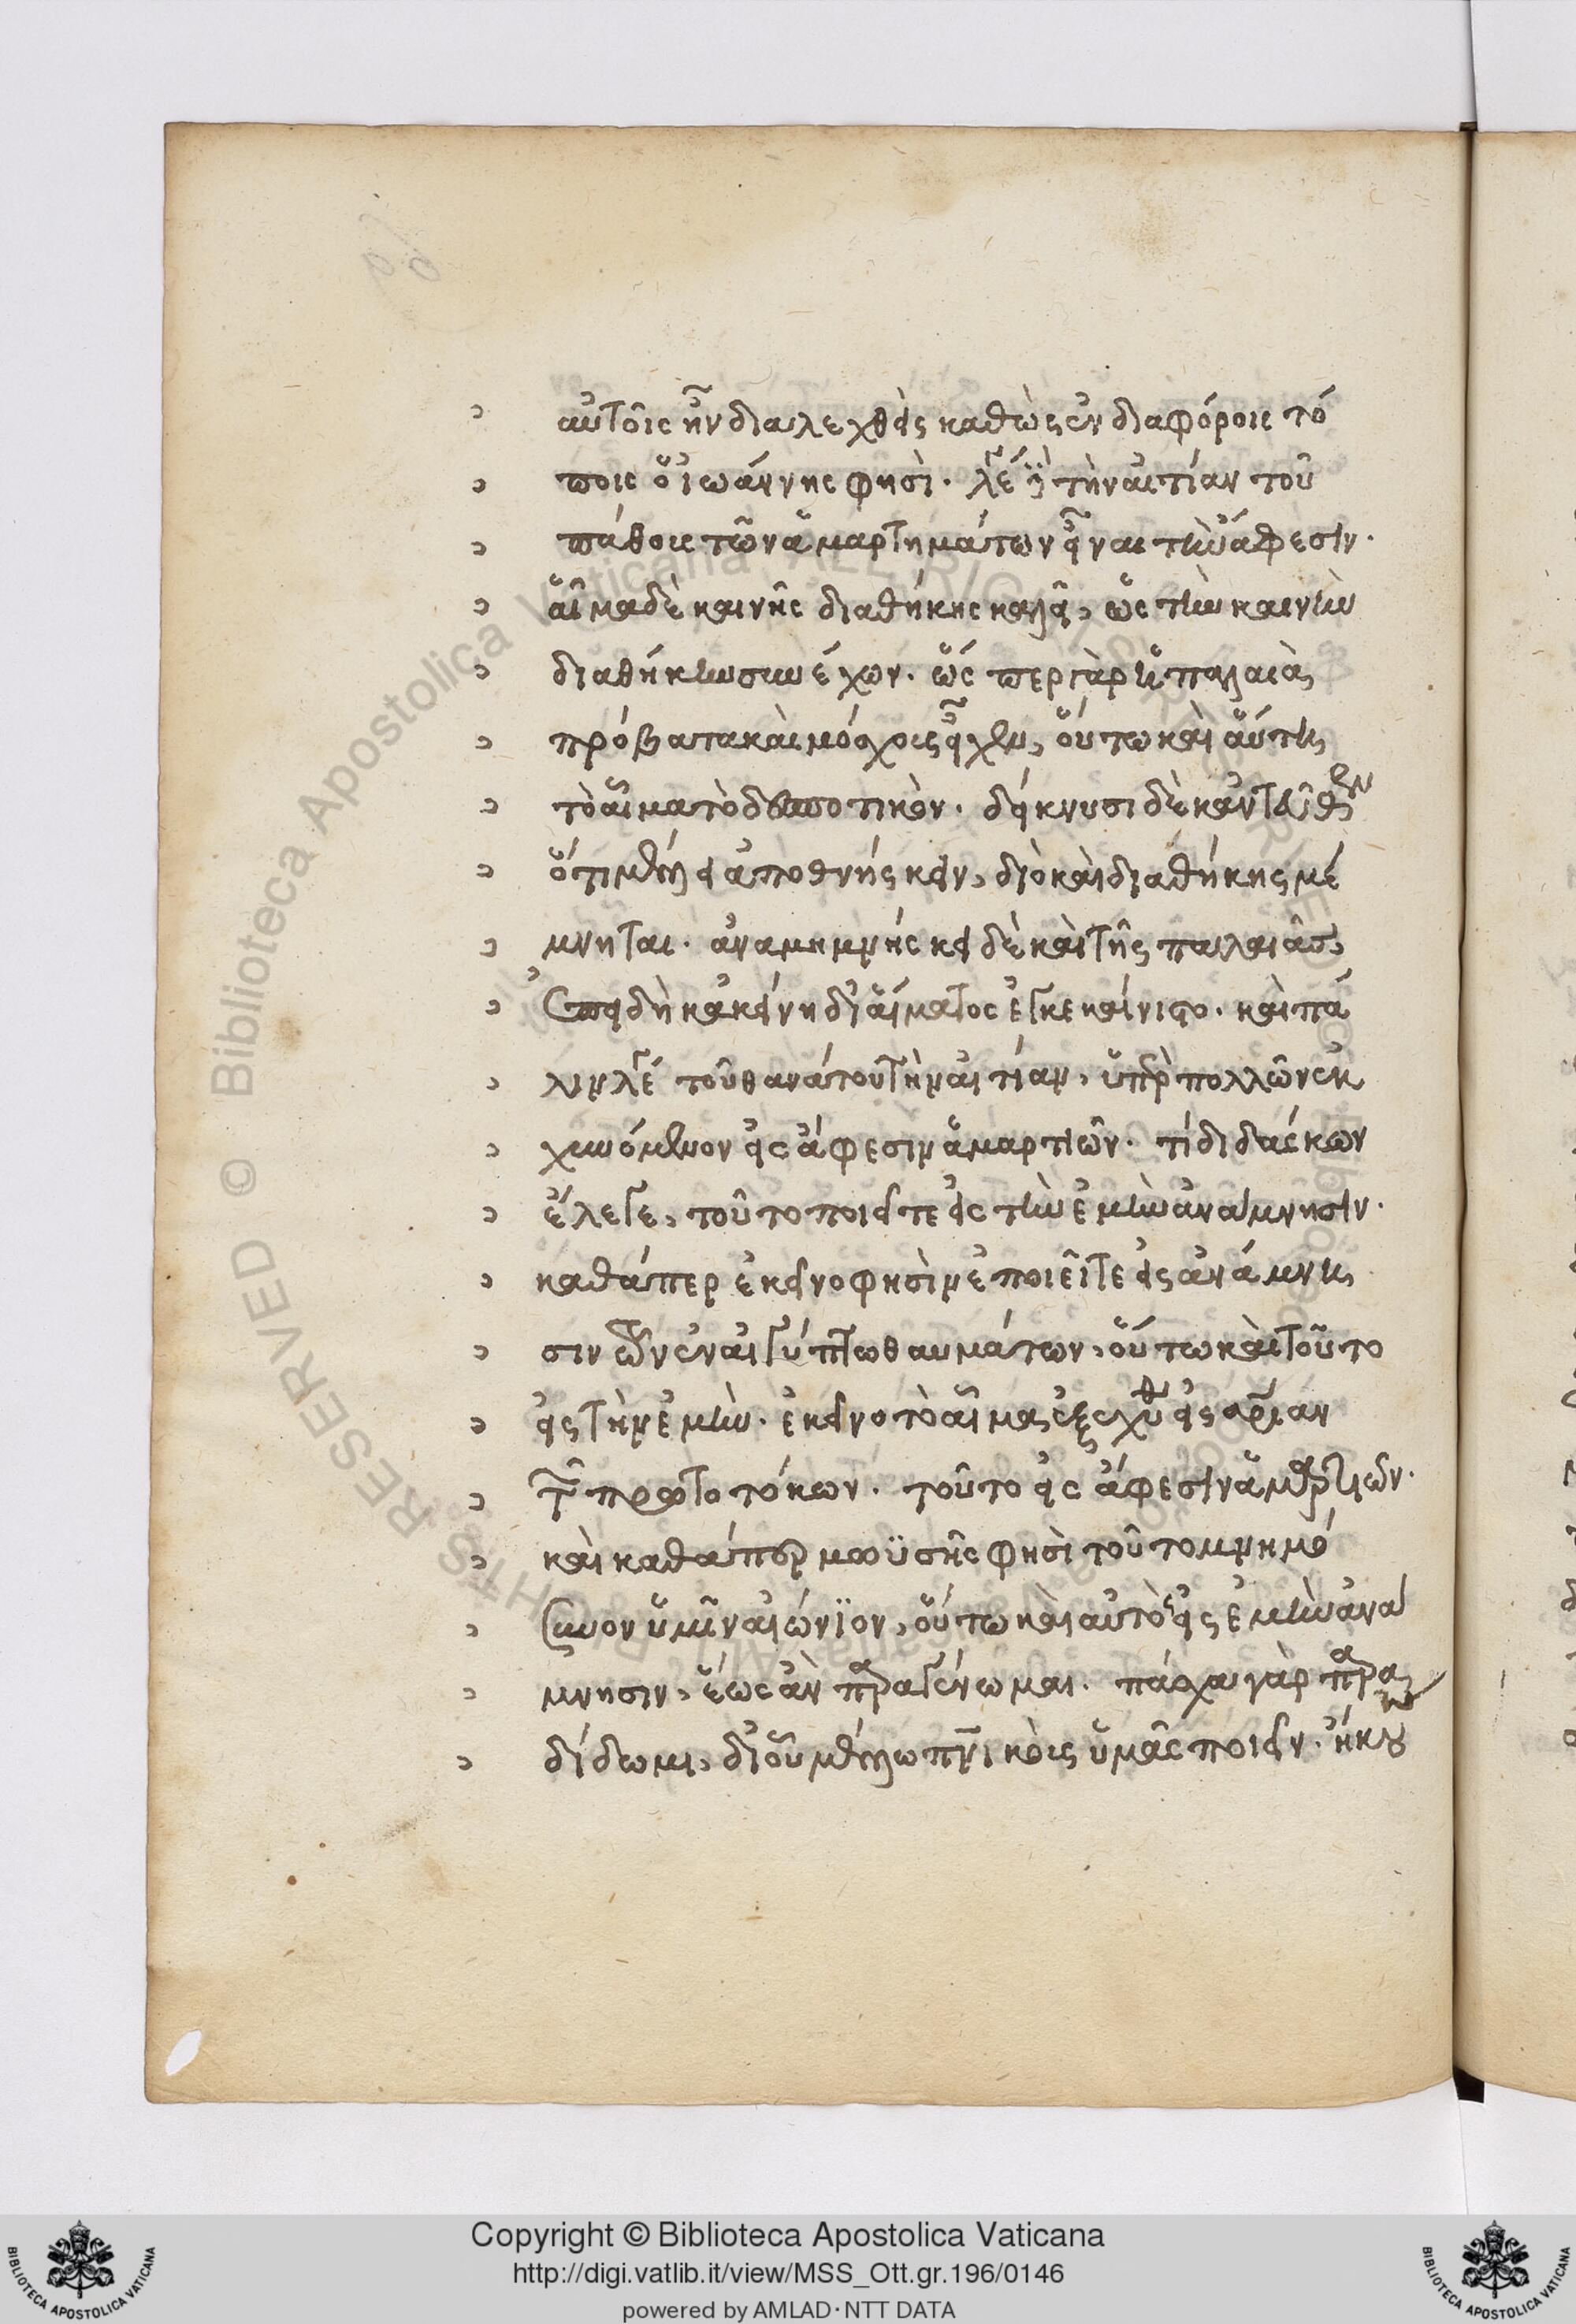 αὐτοῖς ἦν διαλεχθεὶς καθὼς ἐν διαφόροις τό
ποις ὁ ἰωάννης φησὶ. λέγει τὴν αἰτίαν τοῦ
πάθους τῶν ἁμαρτημάτων εἶναι τὴν ἄφεσιν.
αἷμα δὲ καινῆς διαθήκης καλεῖ, ὡς τὴν καινὴν
διαθήκην συνέχον. ὥσπερ γὰρ ἡ παλαιὰ
πρόβατα καὶ μόσχους εἶχεν, οὕτω καὶ αὕτη
τὸ αἷμα τὸ δεσποτικὸν. δείκνυσι δὲ κἀνταῦθεν
ὅτι μέλλει ἀποθνήσκειν, διὸ καὶ διαθήκης μέ
μνηται. ἀναμιμνήσκει δὲ καὶ τῆς παλαιᾶς,
ἐπειδὴ κἀκείνη δι' αἵματος ἐγκεκαίνιστο. καὶ πά
λιν λέγει τοῦ θανάτου τὴν αἰτίαν, ὑπὲρ πολλῶν ἐκ
χυνόμενον εἰς ἄφεσιν ἁμαρτιῶν. τί διδάσκων
ἔλεγε, τοῦτο ποιεῖτε εἰς τὴν ἐμὴν ἀνάμνησιν.
καθάπερ ἐκεῖνο φησὶν ἐποιεῖτε εἰς ἀνάμνη
σιν τῶν ἐν αἰγύπτω θαυμάτων, οὕτω καὶ τοῦτο
εἰς τὴν ἐμὴν. ἐκεῖνο τὸ αἷμα ἐξεχύθη εἰς σωτηρίαν
τῶν πρωτοτόκων. τοῦτο εἰς ἄφεσιν ἁμαρτιῶν.
καὶ καθάπερ μωϋσῆς φησὶ τοῦτο μνημό
συνον ὑμῖν αἰώνϊον, οὕτω καὶ αὐτὸς εἰς ἐμὴν ἀνά
μνησιν, ἕως ἂν παραγένωμαι. πάσχα γὰρ παρα
δίδωμι, δι' οὗ μέλλω πνευματικοὺς ὑμᾶς ποιεῖν. ἤκου
Copyright © Biblioteca Apostolica Vaticana
http://digi.vatlib.it/view/MSS_Ott.gr.196/0146
powered by AMLAD·NTT DATA